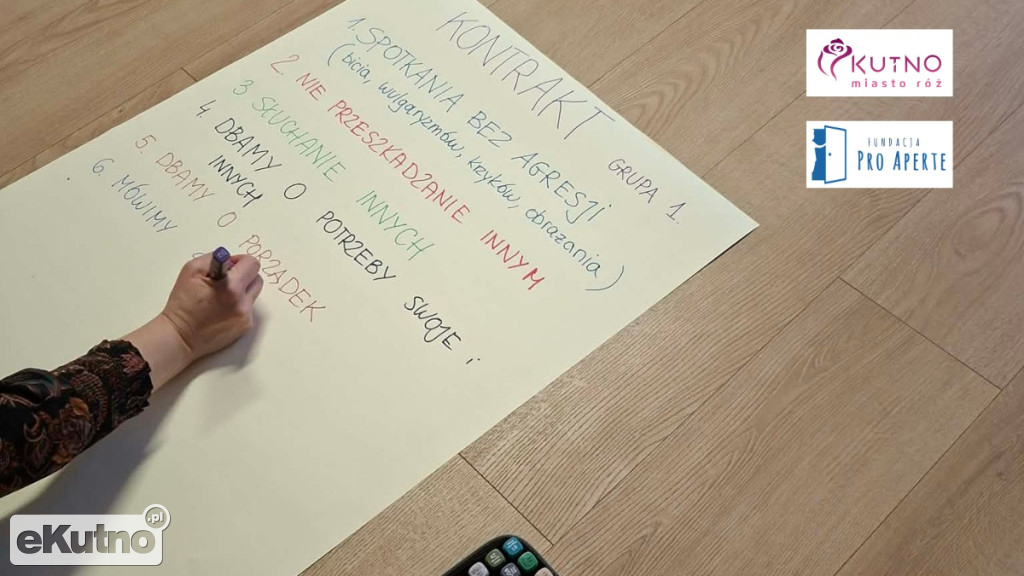 KONTRAKT
GRUPA 1.
1. SPOTKANIA BEZ AGRESJI
(bicia, wulgaryzmów, krzyków, obrażania)
2. NIE PRZESZKADZANIE INNYM
3 SŁUCHANIE INNYCH
4. DBAMY O POTRZEBY SWOJE i
INNYCH
5. DBAMY O PORZĄDEK
6. MÓWIMY
KUTNO
miasto róż
FUNDACJA
PRO APERTE
eKutno.pl